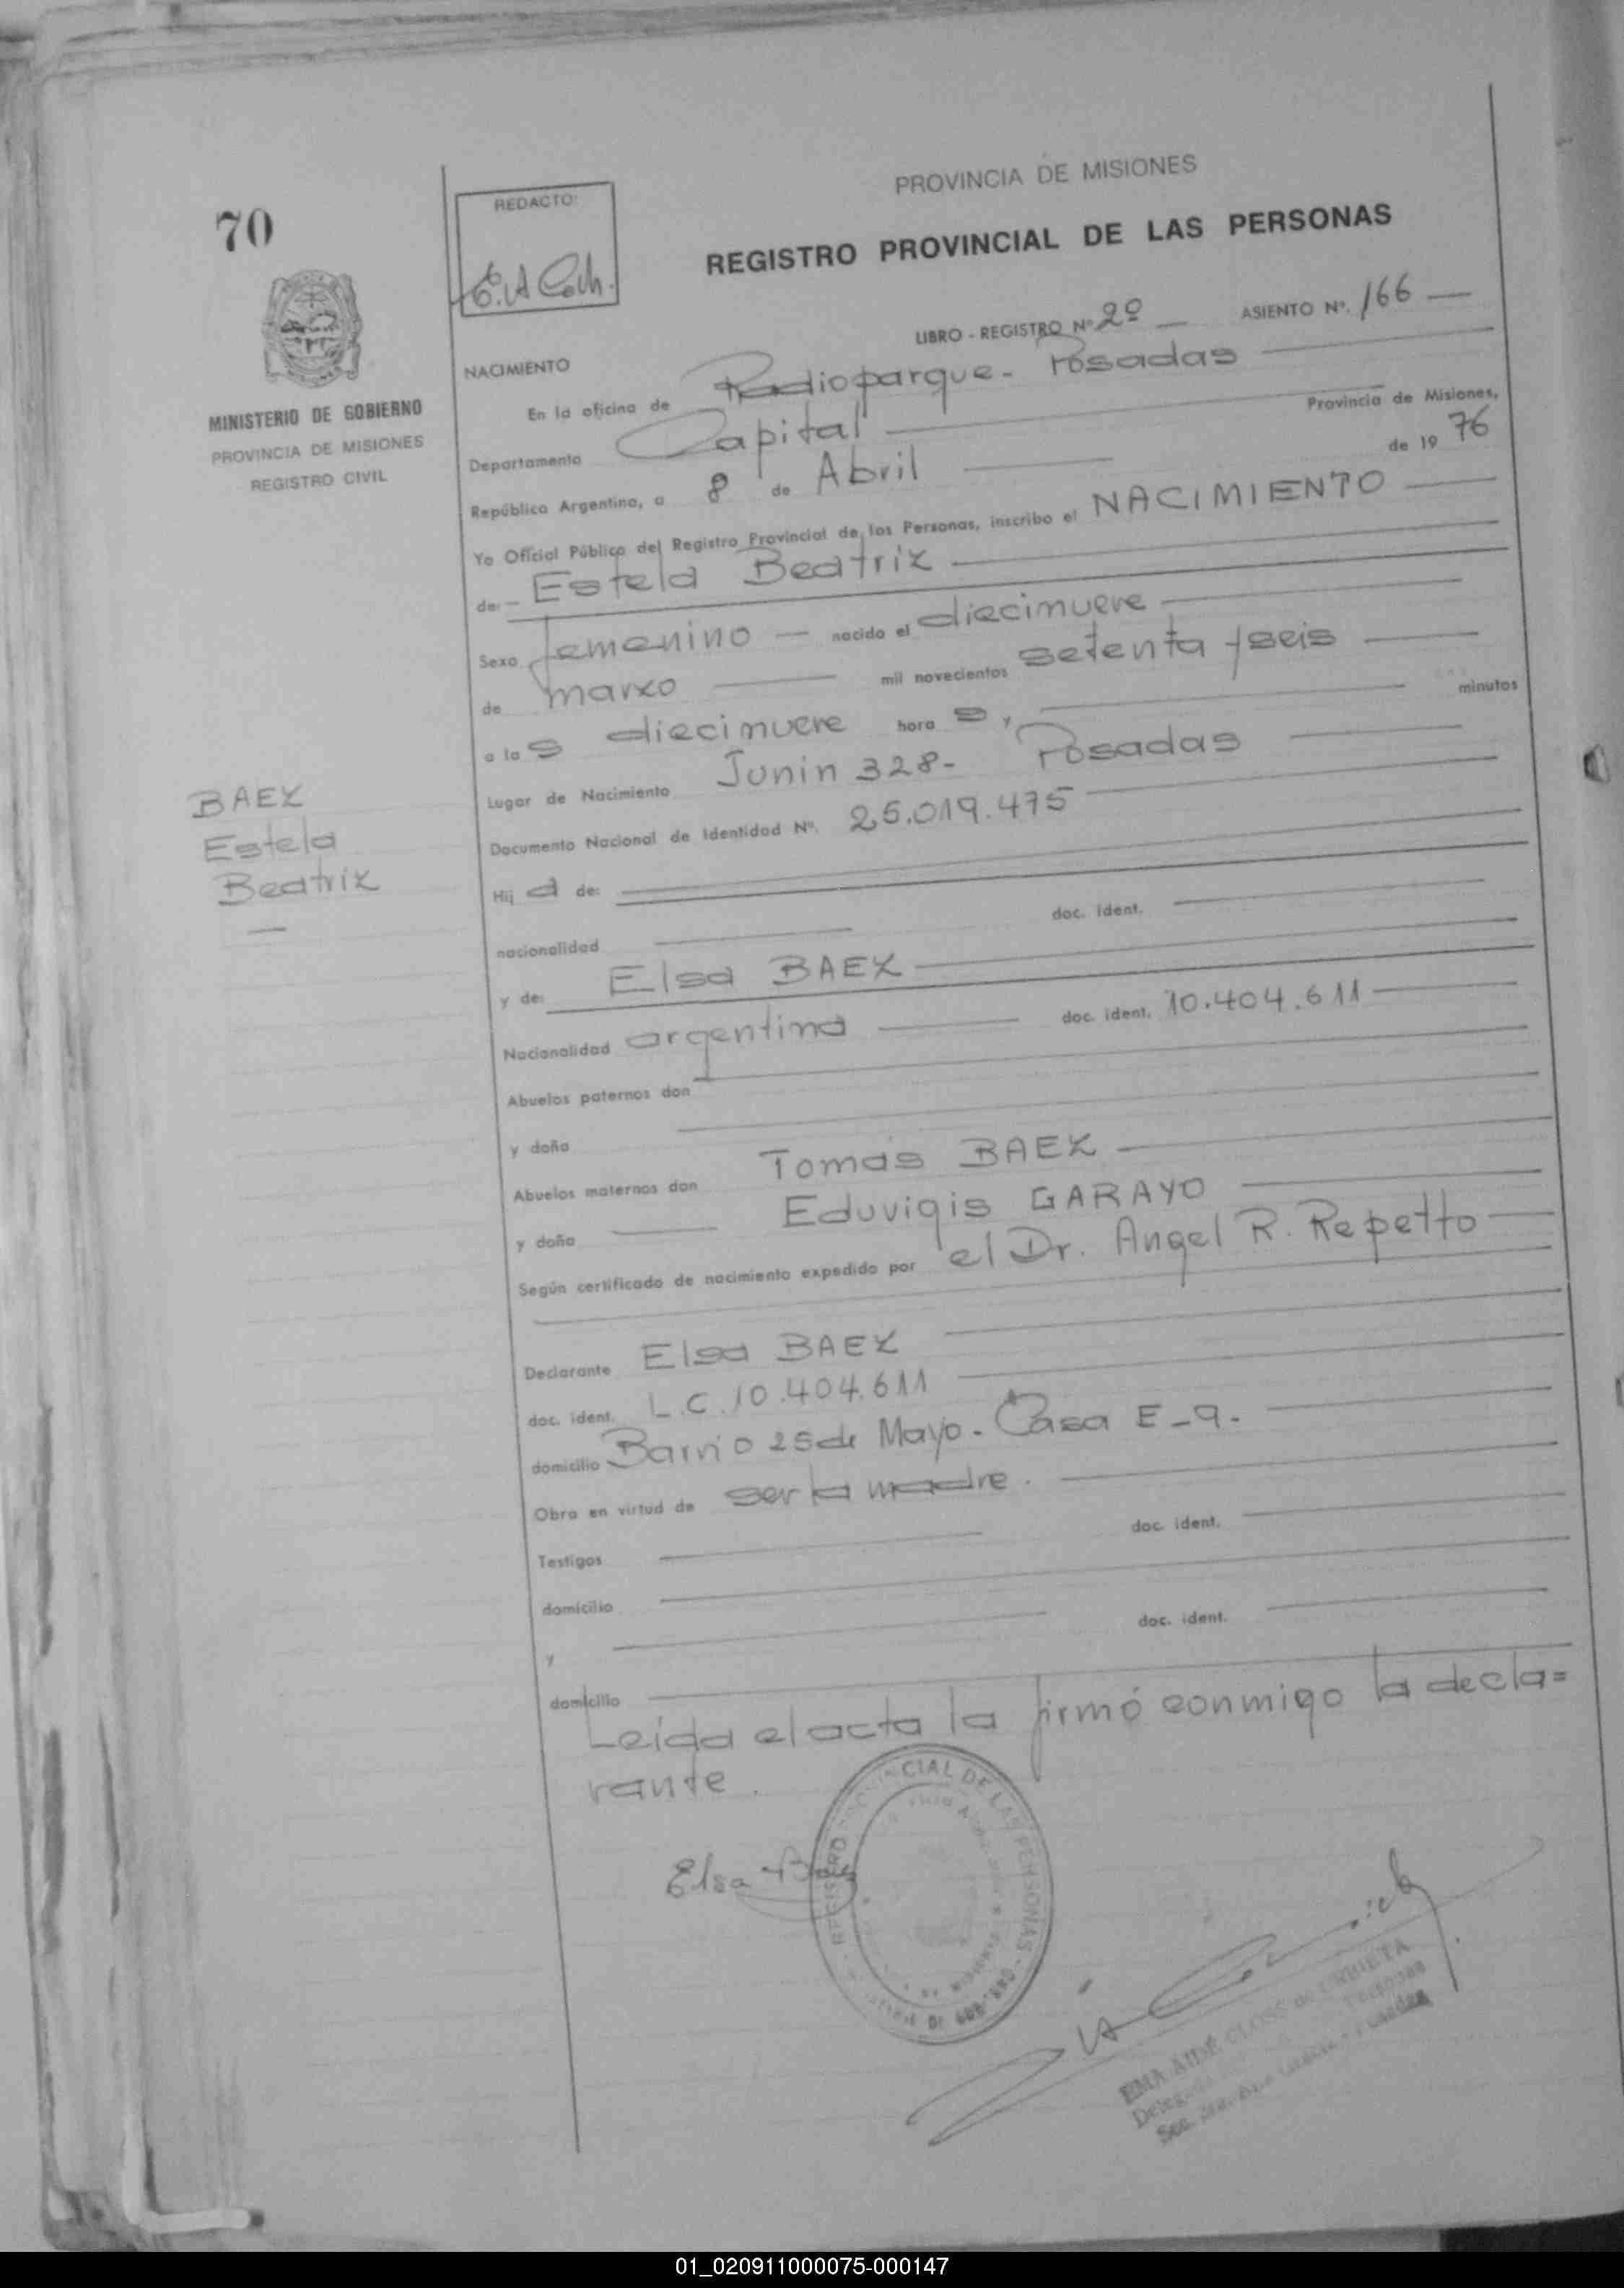 70
MINISTERIO DE GOBIERNO
PROVINCIA DE MISIONES
REGISTRO CIVIL
REDACTO:
PROVINCIA DE MISIONES
REGISTRO PROVINCIAL DE LAS PERSONAS
LIBRO - REGISTRO Nº 2º — ASIENTO Nº. 166 —
NACIMIENTO
En la oficina de Radioparque - Posadas
Departamento Capital Provincia de Misiones,
República Argentina, a 8 de Abril de 19 76
Yo Oficial Público del Registro Provincial de las Personas, inscribo el NACIMIENTO
de: — Estela Beatriz
Sexo femenino — nacido el diecinueve
de marzo mil novecientos setenta y seis
a la s diecinueve hora s y minutos
Lugar de Nacimiento Junin 328 - Posadas
Documento Nacional de Identidad Nº. 25.019.475
Hij a de:
nacionalidad doc. ident.
y de: Elsa BAEZ
Nacionalidad argentina doc. ident. 10.404.611
Abuelos paternos don
y doña
Abuelos maternos don Tomás BAEZ
y doña Eduvigis GARAYO
Según certificado de nacimiento expedido por el Dr. Angel R. Repetto
Declarante Elsa BAEZ
doc. ident. L.C. 10.404.611
domicilio Barrio 25 de Mayo - Casa E-9-
Obra en virtud de ser la madre.
Testigos doc. ident.
domicilio
y doc. ident.
domicilio
Leída el acta la firmó conmigo la decla=
rante.
BAEZ
Estela
Beatriz
Elsa Baez
REGISTRO PROVINCIAL DE LAS PERSONAS
EMA AIDÉ CLOSS de URRIETA
01_020911000075-000147